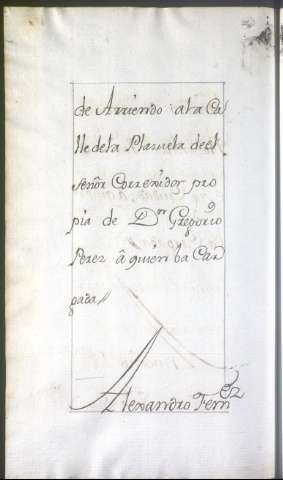 de Arriendo a la Ca
lle de la Plazuela de el
señor Correxidor pro
pia de Dn Gregorio
Perez â quien ba Car
gada //
Alexandro Fernz